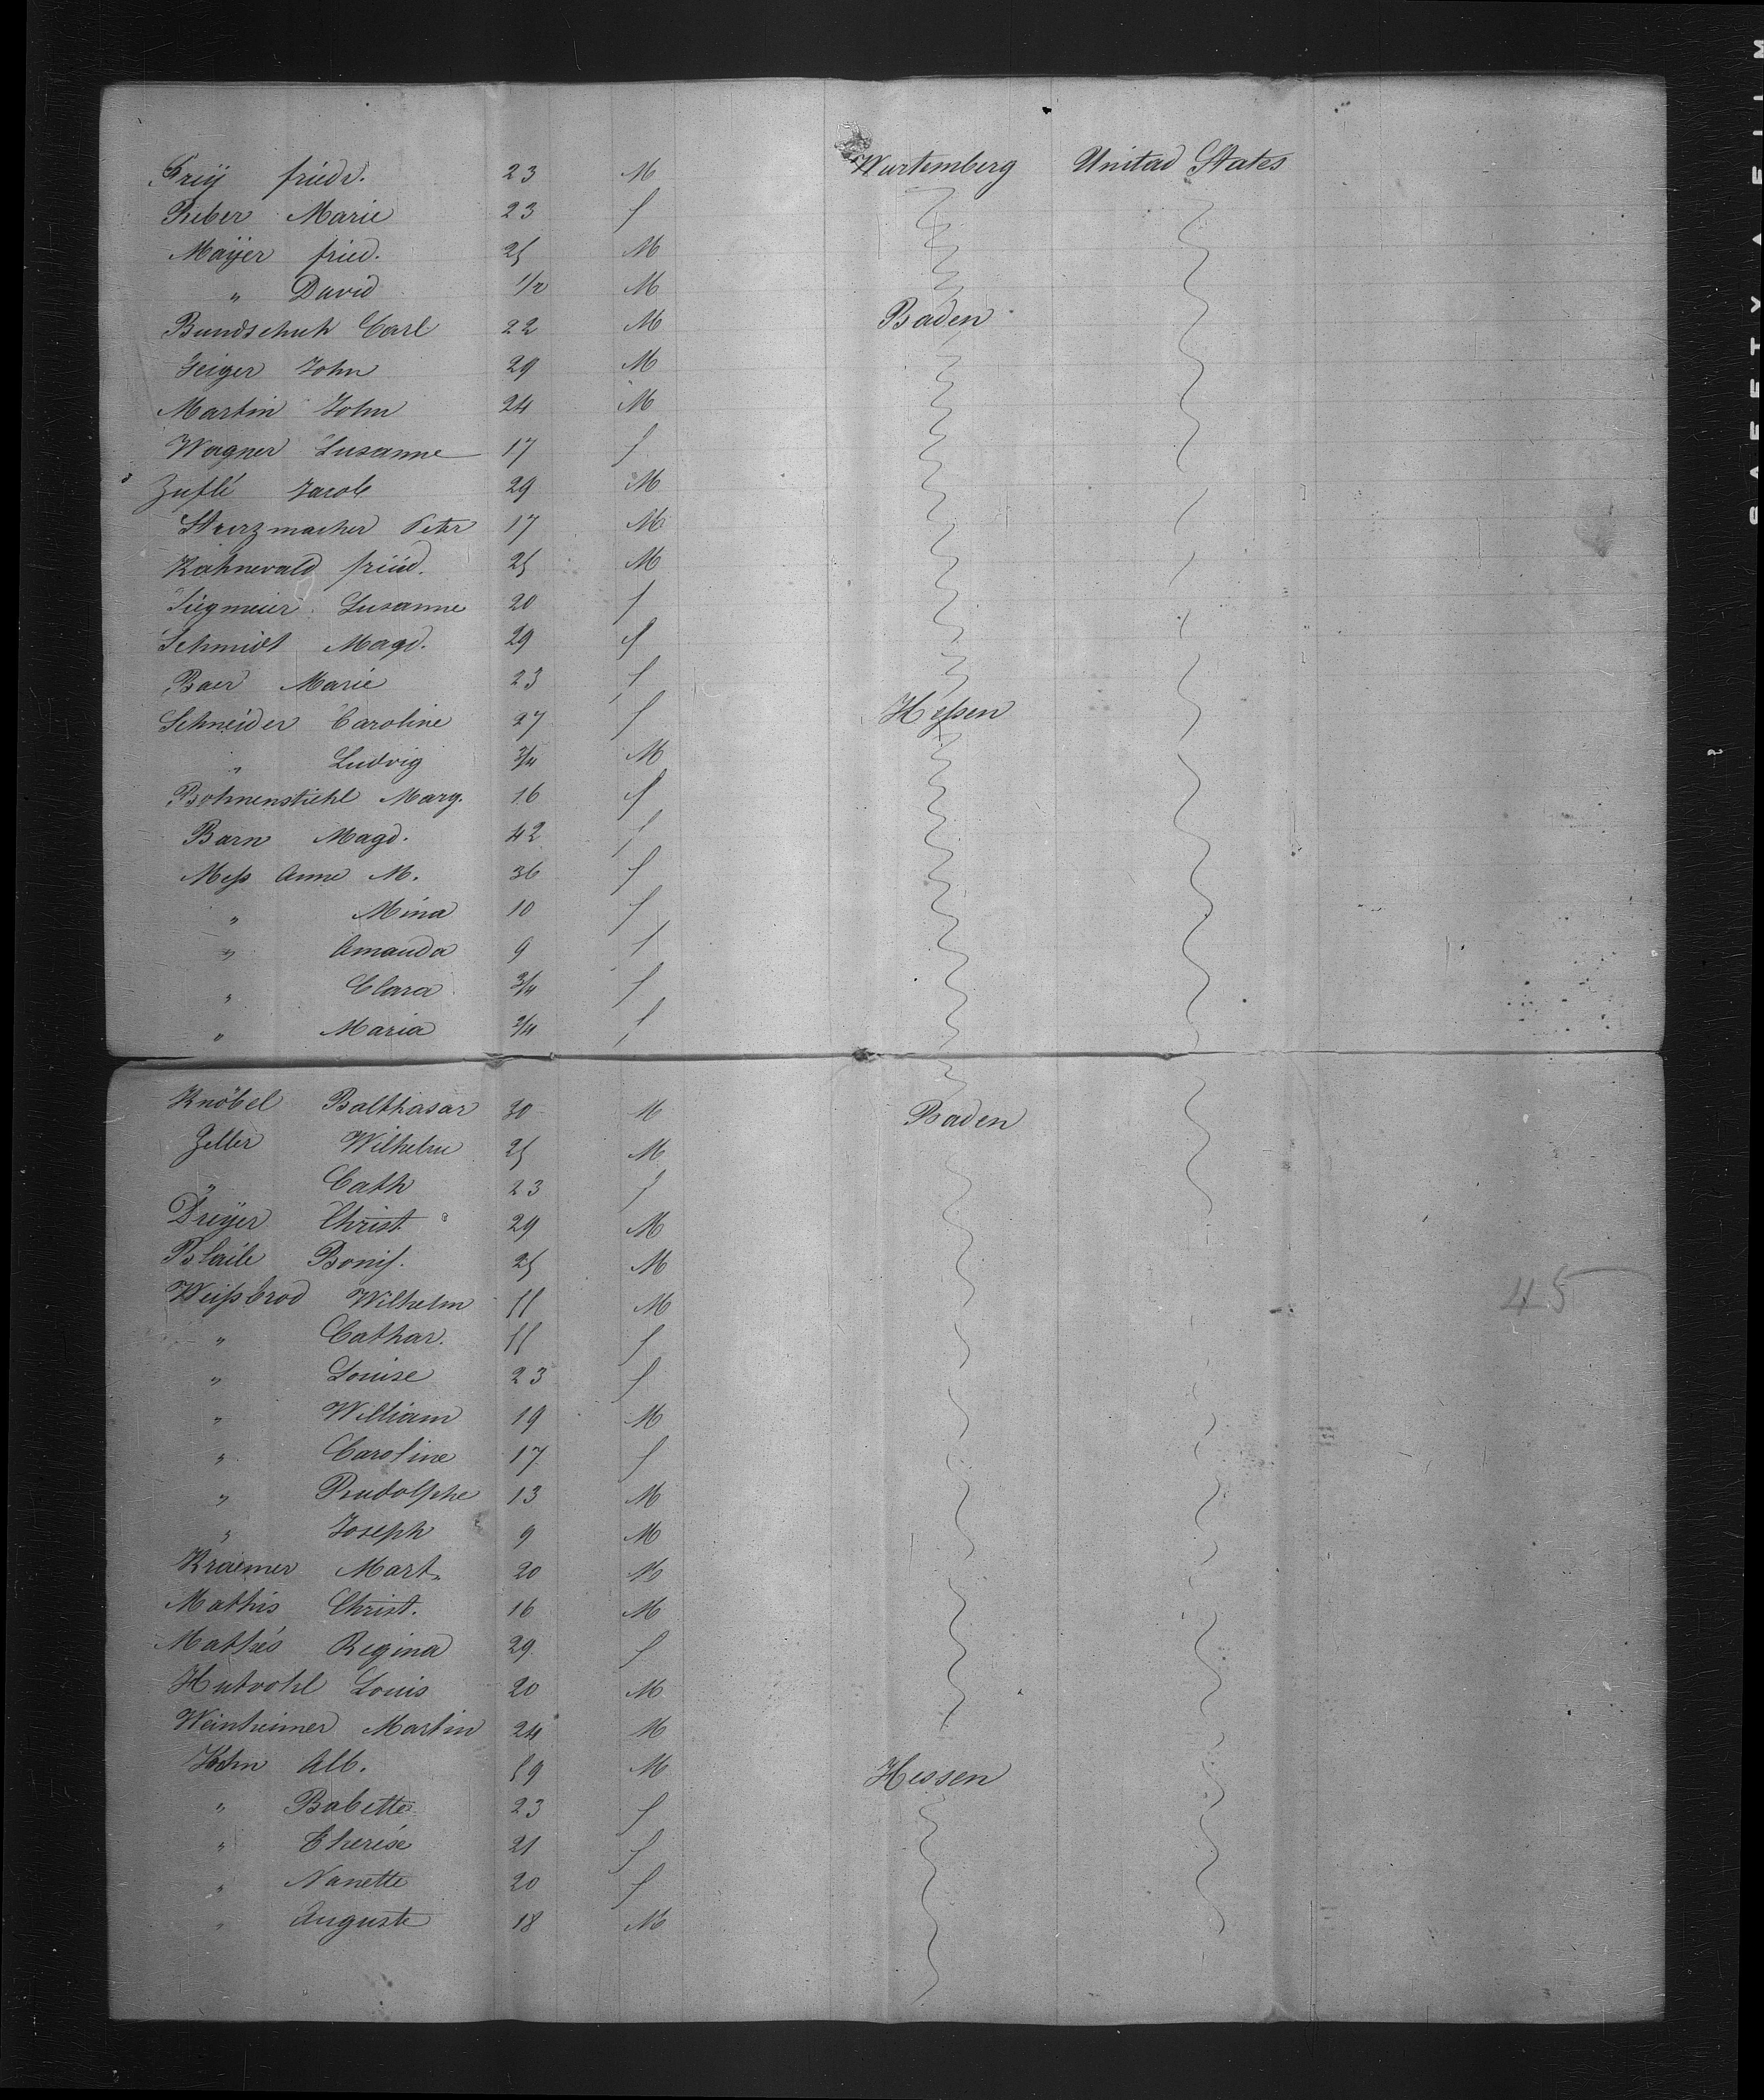 Freÿ friedr. 23 M Wurtemberg Unitad States
Reber Marie 23 f
Maÿer fried. 25 M
" David 1/2 M
Bundschuh Carl 22 M Baden
Geiger John 29 M
Martin John 24 M
Wagner Susanne 17 f
Zuflé Jacob 29 M
Sterzmacher Peter 17 M
Kohnevald fried. 25 M
Siegmeier Susanne 20 f
Schmidt Magd. 29 f
Baer Marie 23 f
Schneider Caroline 27 f Heßen
" Ludvig 3/4 M
Bohnenstiehl Marg. 16 f
Barn Magd. 42 f
Meß Anne M. 36 f
" Mina 10 f
" Amanda 9 f
" Clara 3/4 f
" Maria 3/4 f
Knöbel Balthasar 30 M Baden
Zeller Wilhelm 25 M
" Cath 23 f
Dreÿer Christ 29 M
Blaile Bonif. 25 M
Weißbrod Wilhelm 55 M 45
" Cathar. 55 f
" Louise 23 f
" William 19 M
" Caroline 17 f
" Rudolphe 13 M
" Joseph 9 M
Kraemer Mart. 20 M
Mathis Christ. 16 M
Mathés Regina 29 f
Hutvohl Louis 20 M
Weinheimer Martin 24 M
Kohn Alb. 59 M Hessen
" Babette 23 f
" Therése 21 f
" Nanette 20 f
" Auguste 18 M
SAFETY FILM